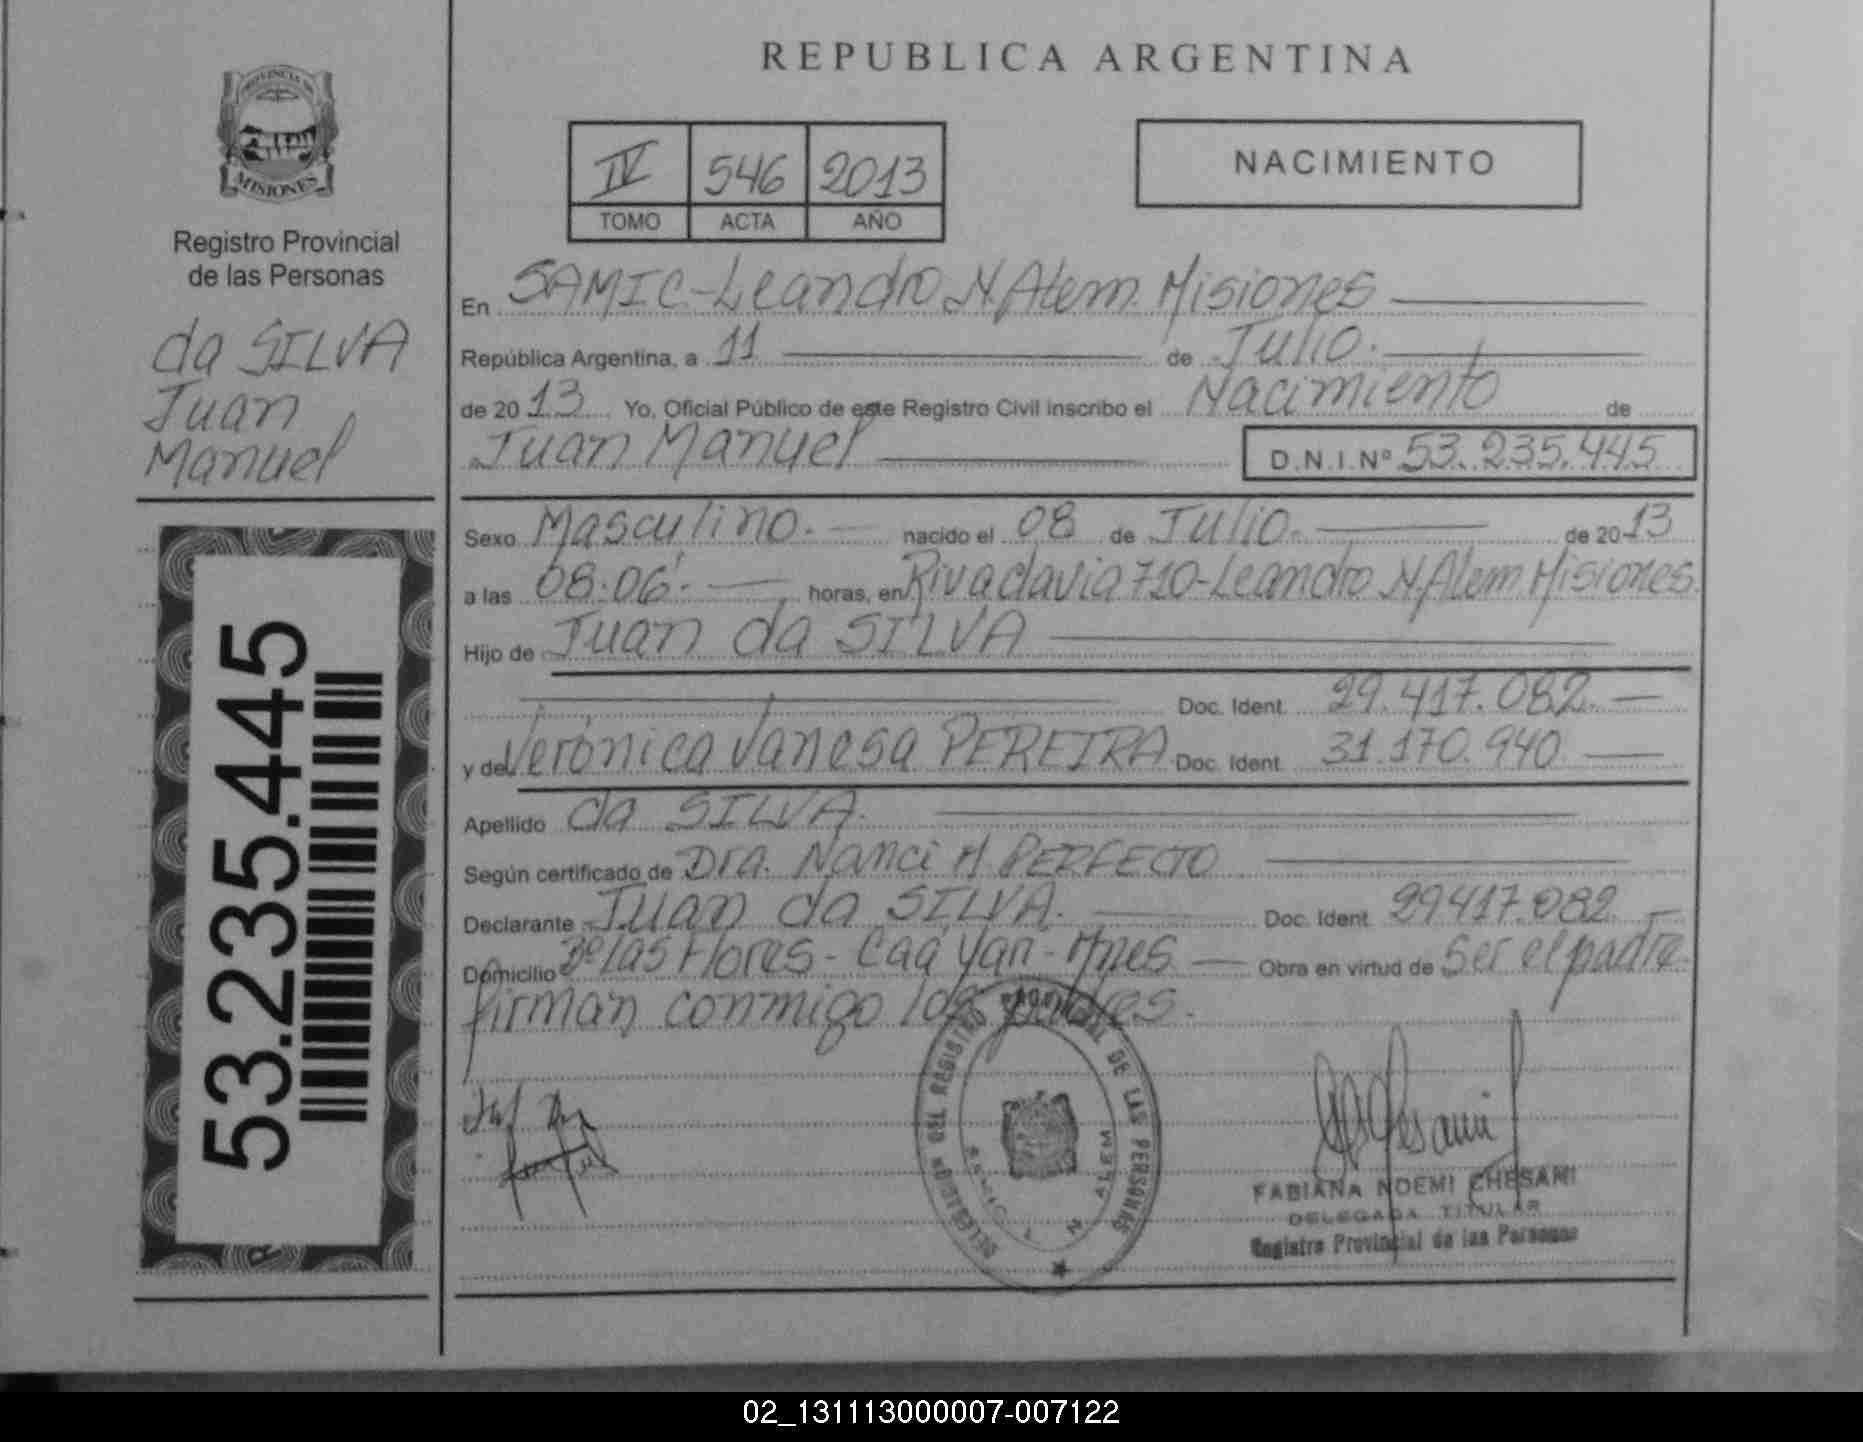 REPUBLICA ARGENTINA
PROVINCIA DE
MISIONES
Registro Provincial
de las Personas
da SILVA
Juan
Manuel
53.235.445
IV 546 2013
TOMO ACTA AÑO
NACIMIENTO
En SAMIC-Leandro N. Alem. Misiones
República Argentina, a 11 de Julio.
de 20 13 Yo, Oficial Público de este Registro Civil inscribo el Nacimiento de
Juan Manuel D.N.I.Nº 53.235.445
Sexo Masculino. nacido el 08 de Julio. de 20 13
a las 08:06'. horas, en Rivadavia 710-Leandro N. Alem. Misiones.
Hijo de Juan da SILVA
Doc. Ident. 29.417.082.
y de Verónica Vanesa PEREIRA Doc. Ident. 31.170.940
Apellido da SILVA.
Según certificado de Dra. Nanci M PERFECTO
Declarante Juan da SILVA. Doc. Ident. 29417.082
Domicilio Bº las Flores - Caá Yarí - Mnes Obra en virtud de ser el padre.
firman conmigo los padres.
DELEGACION DEL REGISTRO PROVINCIAL DE LAS PERSONAS
N ALEM
FABIANA NOEMI CHESANI
DELEGADA TITULAR
Registro Provincial de las Personas
02_131113000007-007122